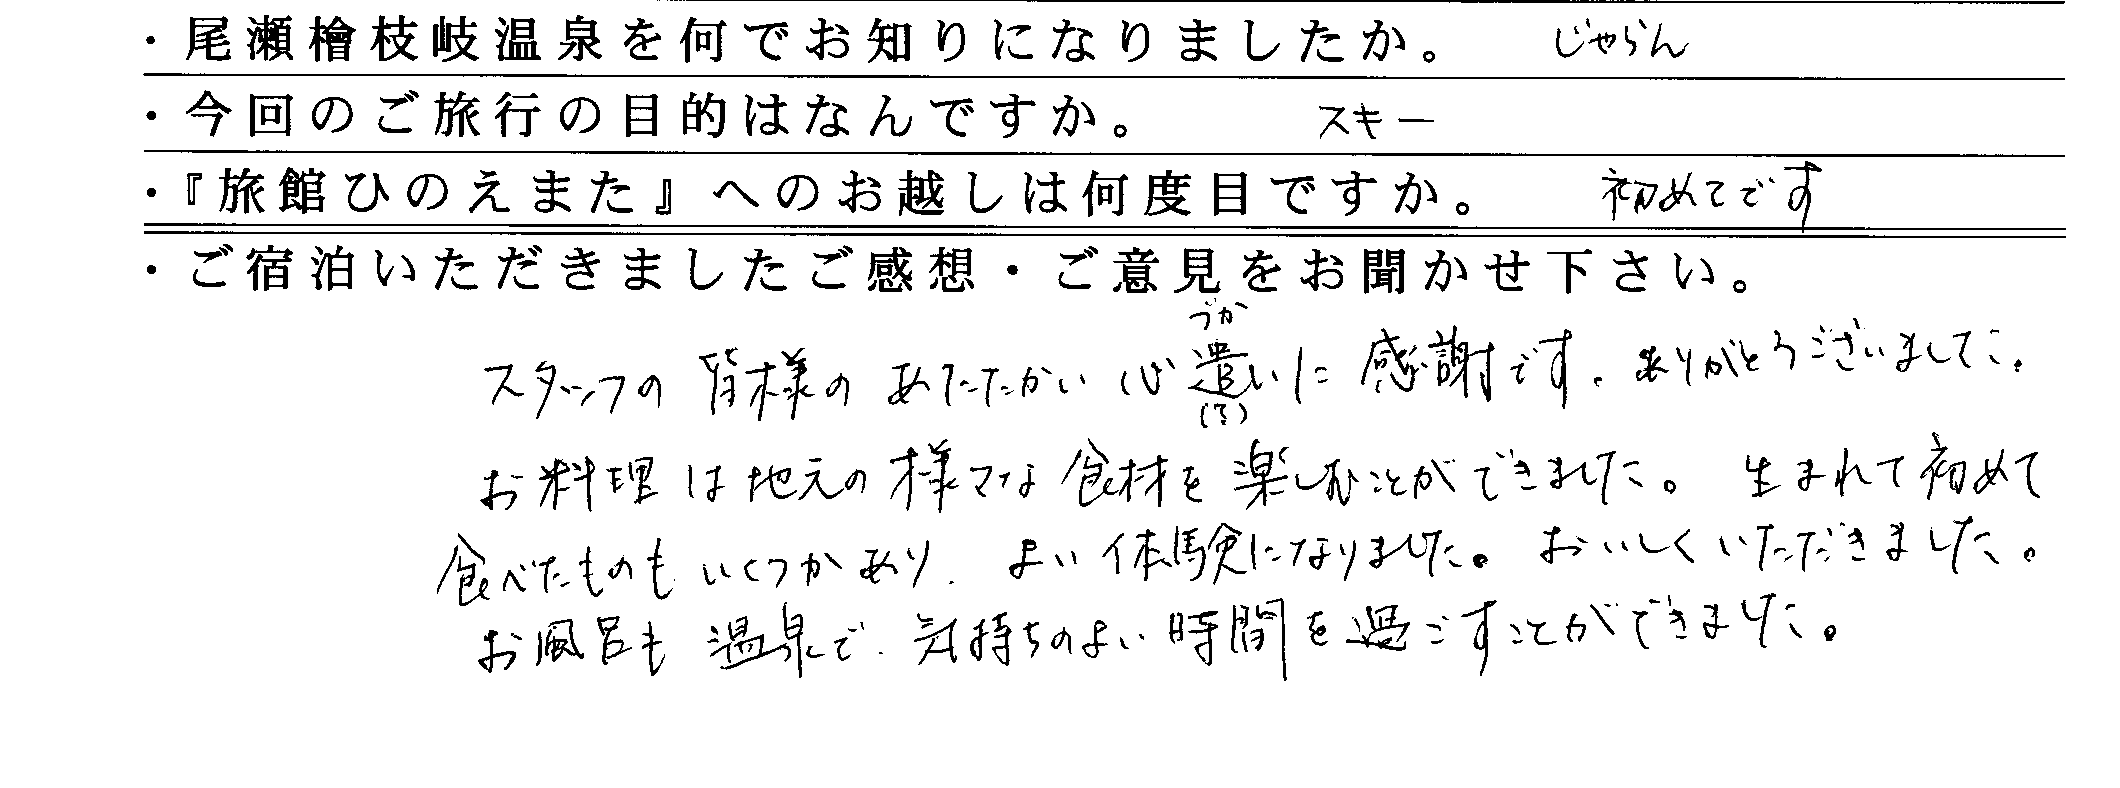 ・尾瀬檜枝岐温泉を何でお知りになりましたか。 じゃらん
・今回のご旅行の目的はなんですか。 スキー
・『旅館ひのえまた』へのお越しは何度目ですか。 初めてです
・ご宿泊いただきましたご感想・ご意見をお聞かせ下さい。
づか
スタッフの皆様のあたたかい心遣いに感謝です。ありがとうございました。
お料理は地元の様々な食材を楽しむことができました。生まれて初めて
食べたものもいくつかあり、よい体験になりました。おいしくいただきました。
お風呂も温泉で、気持ちのよい時間を過ごすことができました。